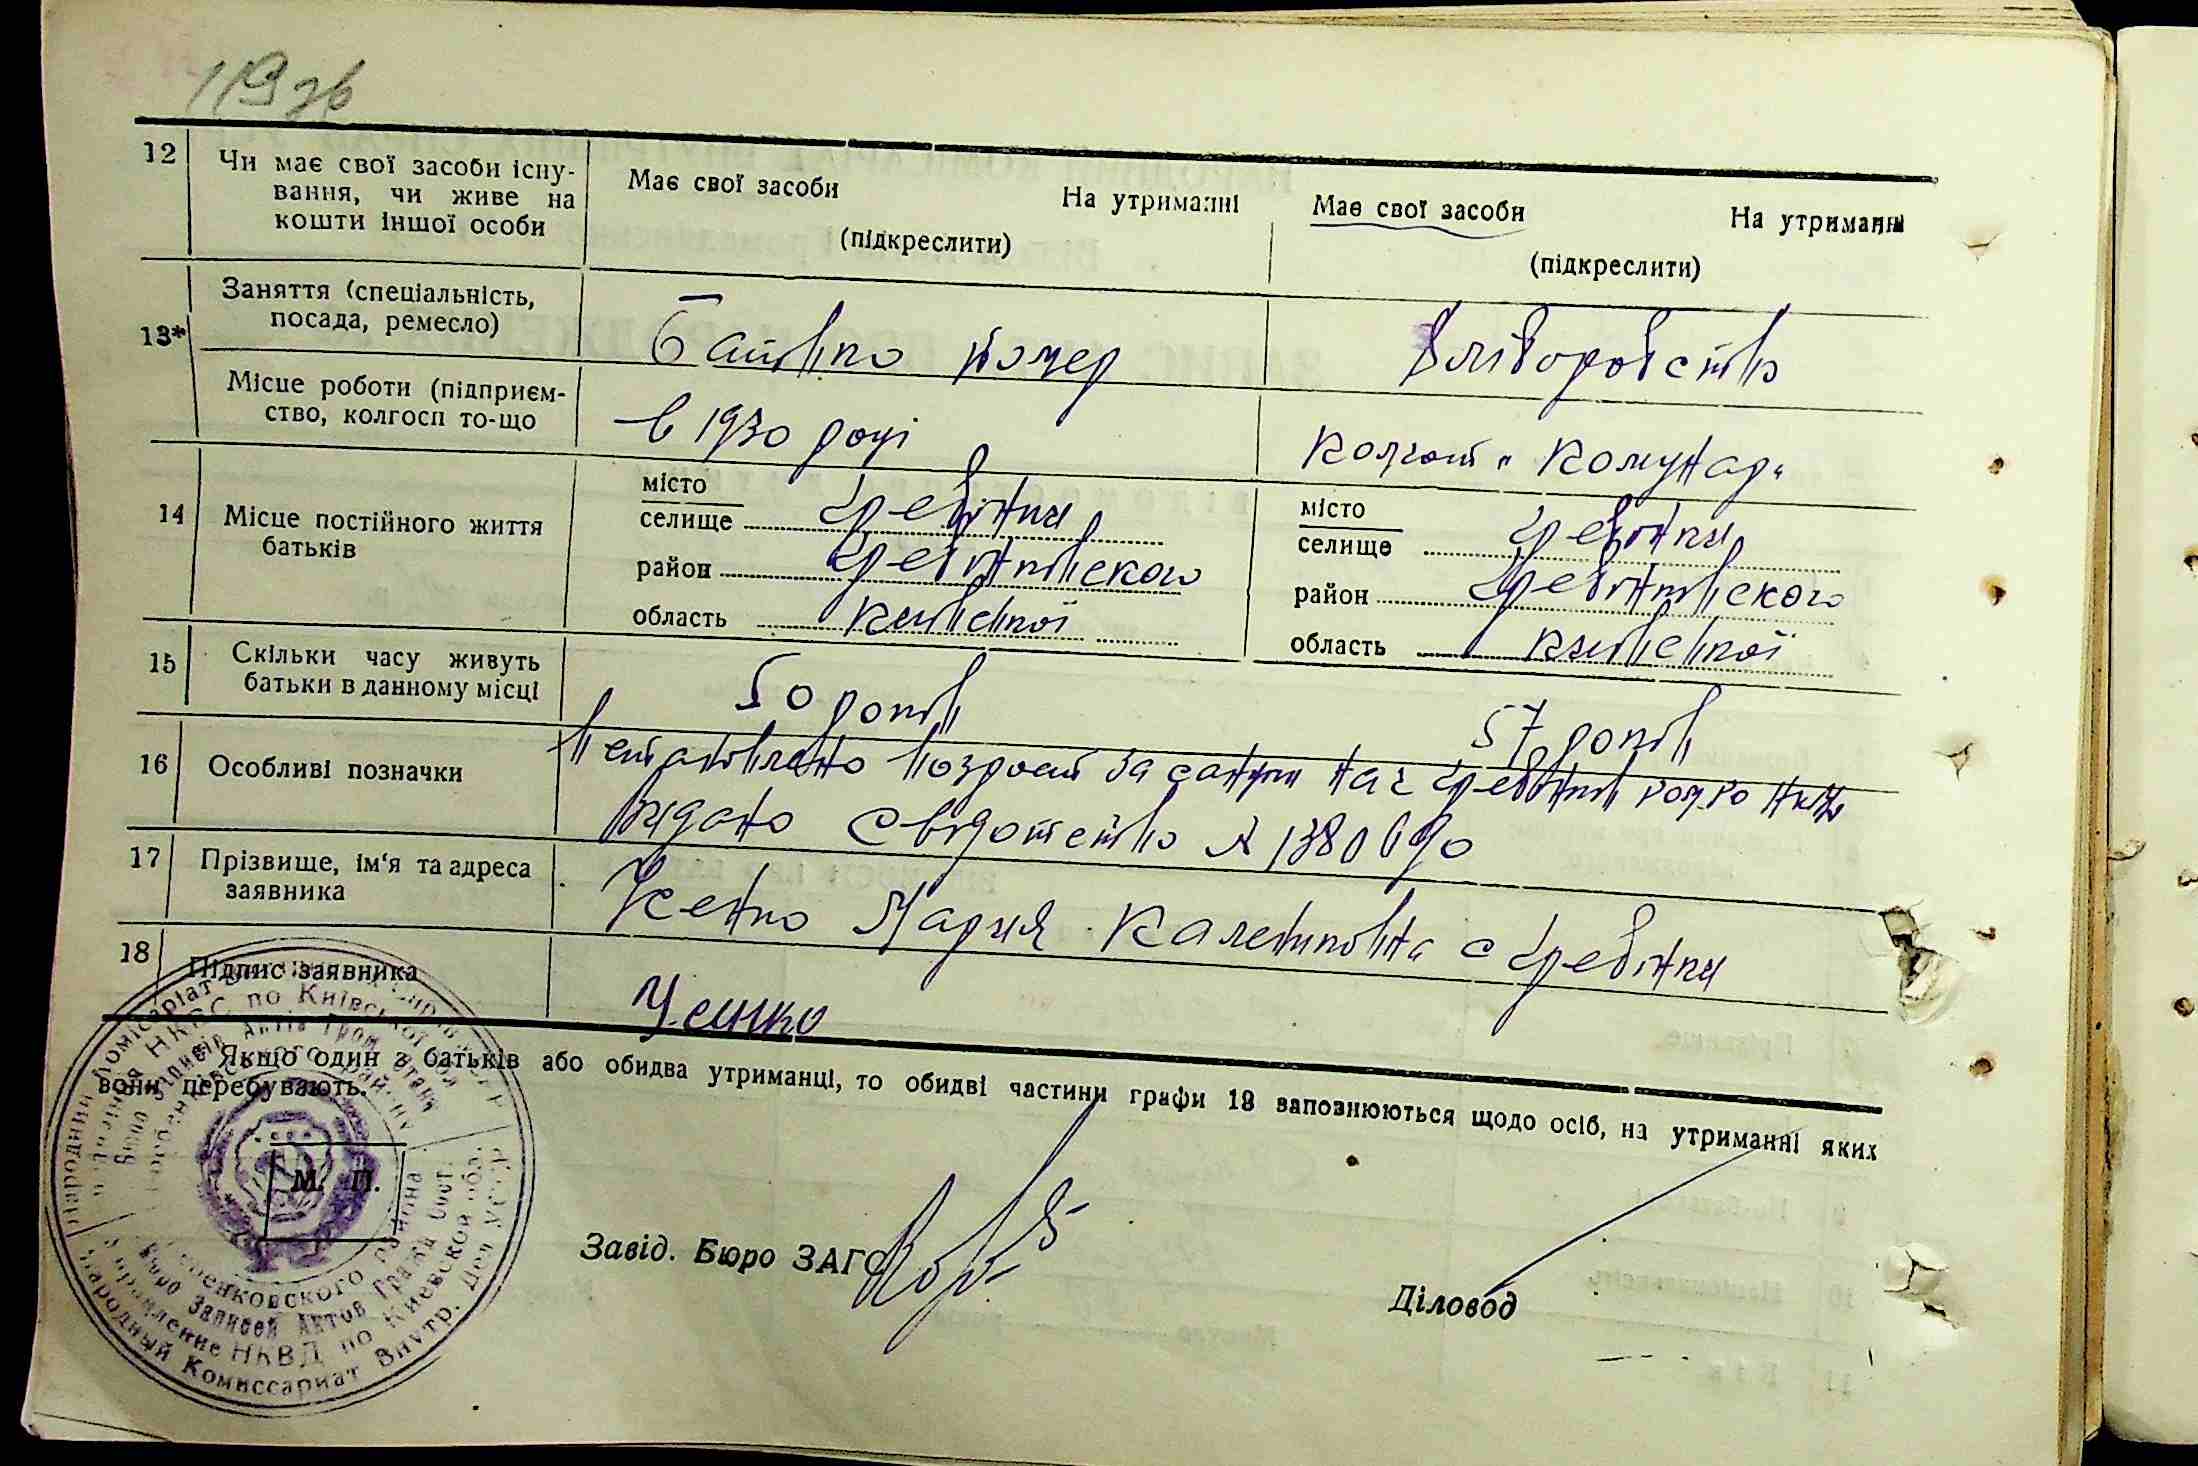 119 зв
12 Чи має свої засоби існування, чи живе на кошти іншої особи
Має свої засоби На утриманні
(підкреслити)
Має свої засоби На утриманні
(підкреслити)
13* Заняття (спеціальність, посада, ремесло)
Батько помер
Хліборобство
Місце роботи (підприємство, колгосп то-що
в 1930 році
колгосп "Комунар"
14 Місце постійного життя батьків
місто
селище Гребінки
район Гребінківского
область Київської
місто
селище Гребінки
район Гребінківского
область Київської
15 Скільки часу живуть батьки в данному місці
50 років
57 років
16 Особливі позначки
Встановлено возраст за
видано свідотство № 1380090
17 Прізвище, ім'я та адреса заявника
Усенко Мария с Гребінки
18 Підпис заявника
Усенко
Якщо один з батьків або обидва утриманці, то обидві частини графи 13 заповнюються щодо осіб, на утриманні яких
вони перебувають.
М. П.
Завід. Бюро ЗАГС
Діловод
Народный Комиссариат Внутр. Дел УССР
Управление НКВД по Киевской обл.
Бюро Записей Актов Гражд. Сост.